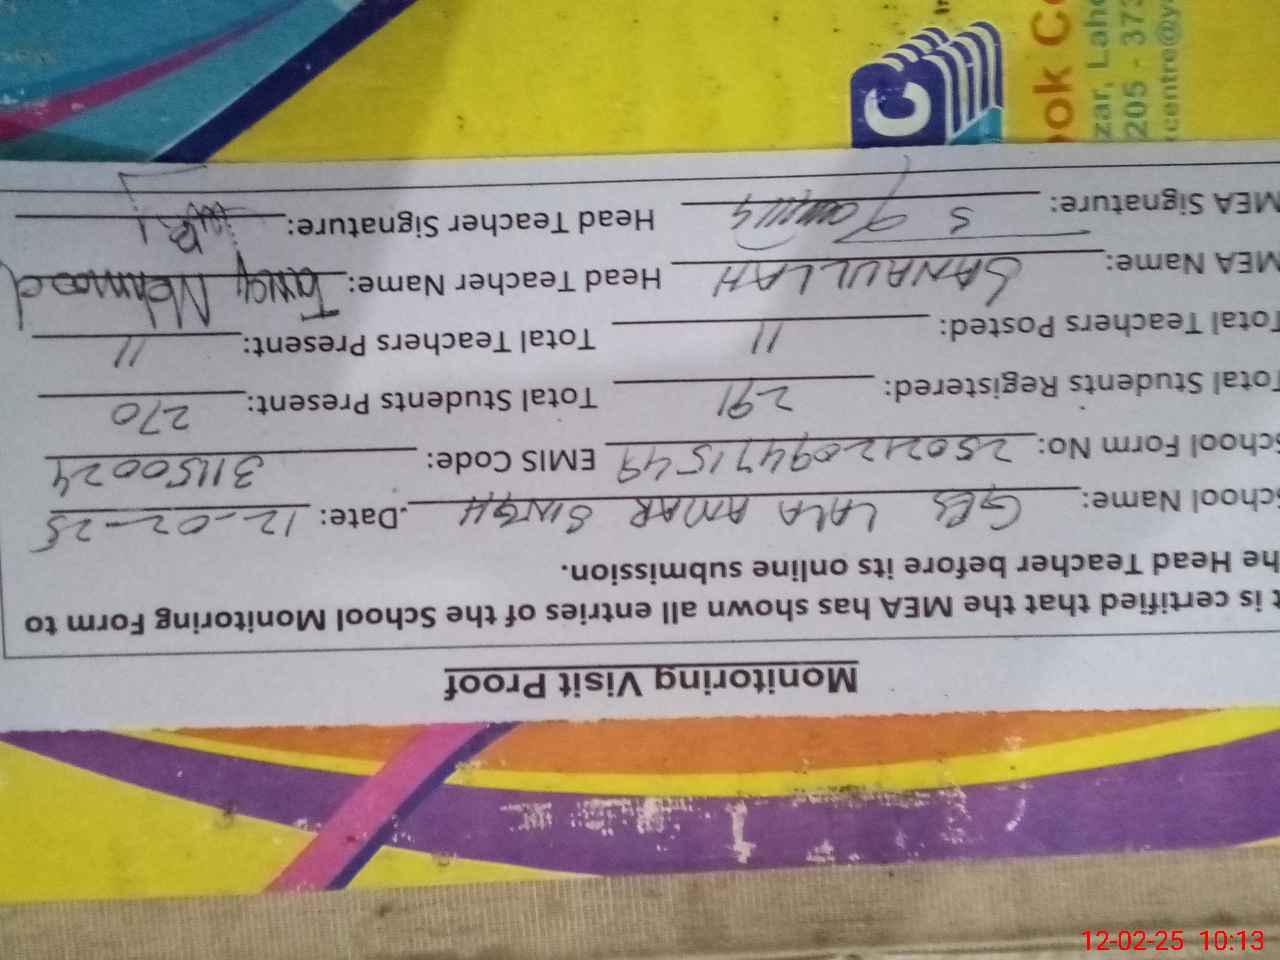 Monitoring Visit Proof
t is certified that the MEA has shown all entries of the School Monitoring Form to
he Head Teacher before its online submission.
School Name: GES LALA AMAR SINGH .Date: 12-02-25
School Form No: 25021209471549 EMIS Code: 31150024
Total Students Registered: 291 Total Students Present: 270
Total Teachers Posted: 11 Total Teachers Present: 11
MEA Name: SANAULLAH Head Teacher Name: Tariq Mehmood
MEA Signature: Head Teacher Signature:
C
ook Ce
zar, Laho
205 - 373
centre@ya
12-02-25 10:13